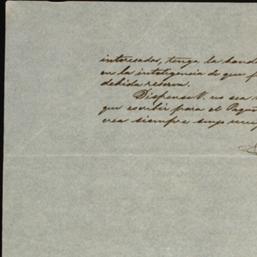 interesados, tenga la bond
en la inteligencia de que
debida reserva.
Dispense V. no sea
que escribir para el Paque
crea siempre suyo muy